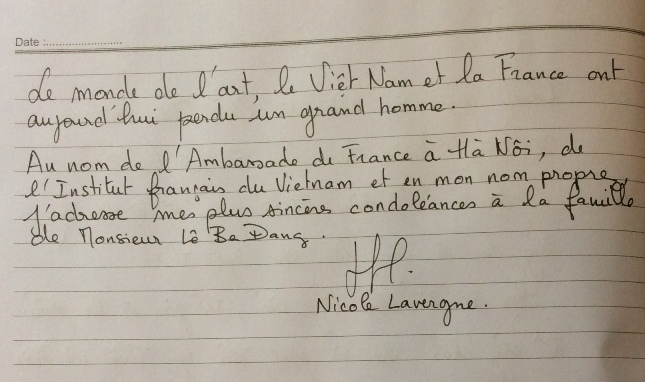 Date :........................
Le monde de l'art, le Việt Nam et la France ont
aujourd'hui perdu un grand homme.
Au nom de l'Ambassade de France à Hà Nôi, de
l'Institut français du Vietnam et en mon nom propre,
j'adresse mes plus sincères condoléances à la famille
de Monsieur Lê Ba Dang.
Nicole Lavergne.